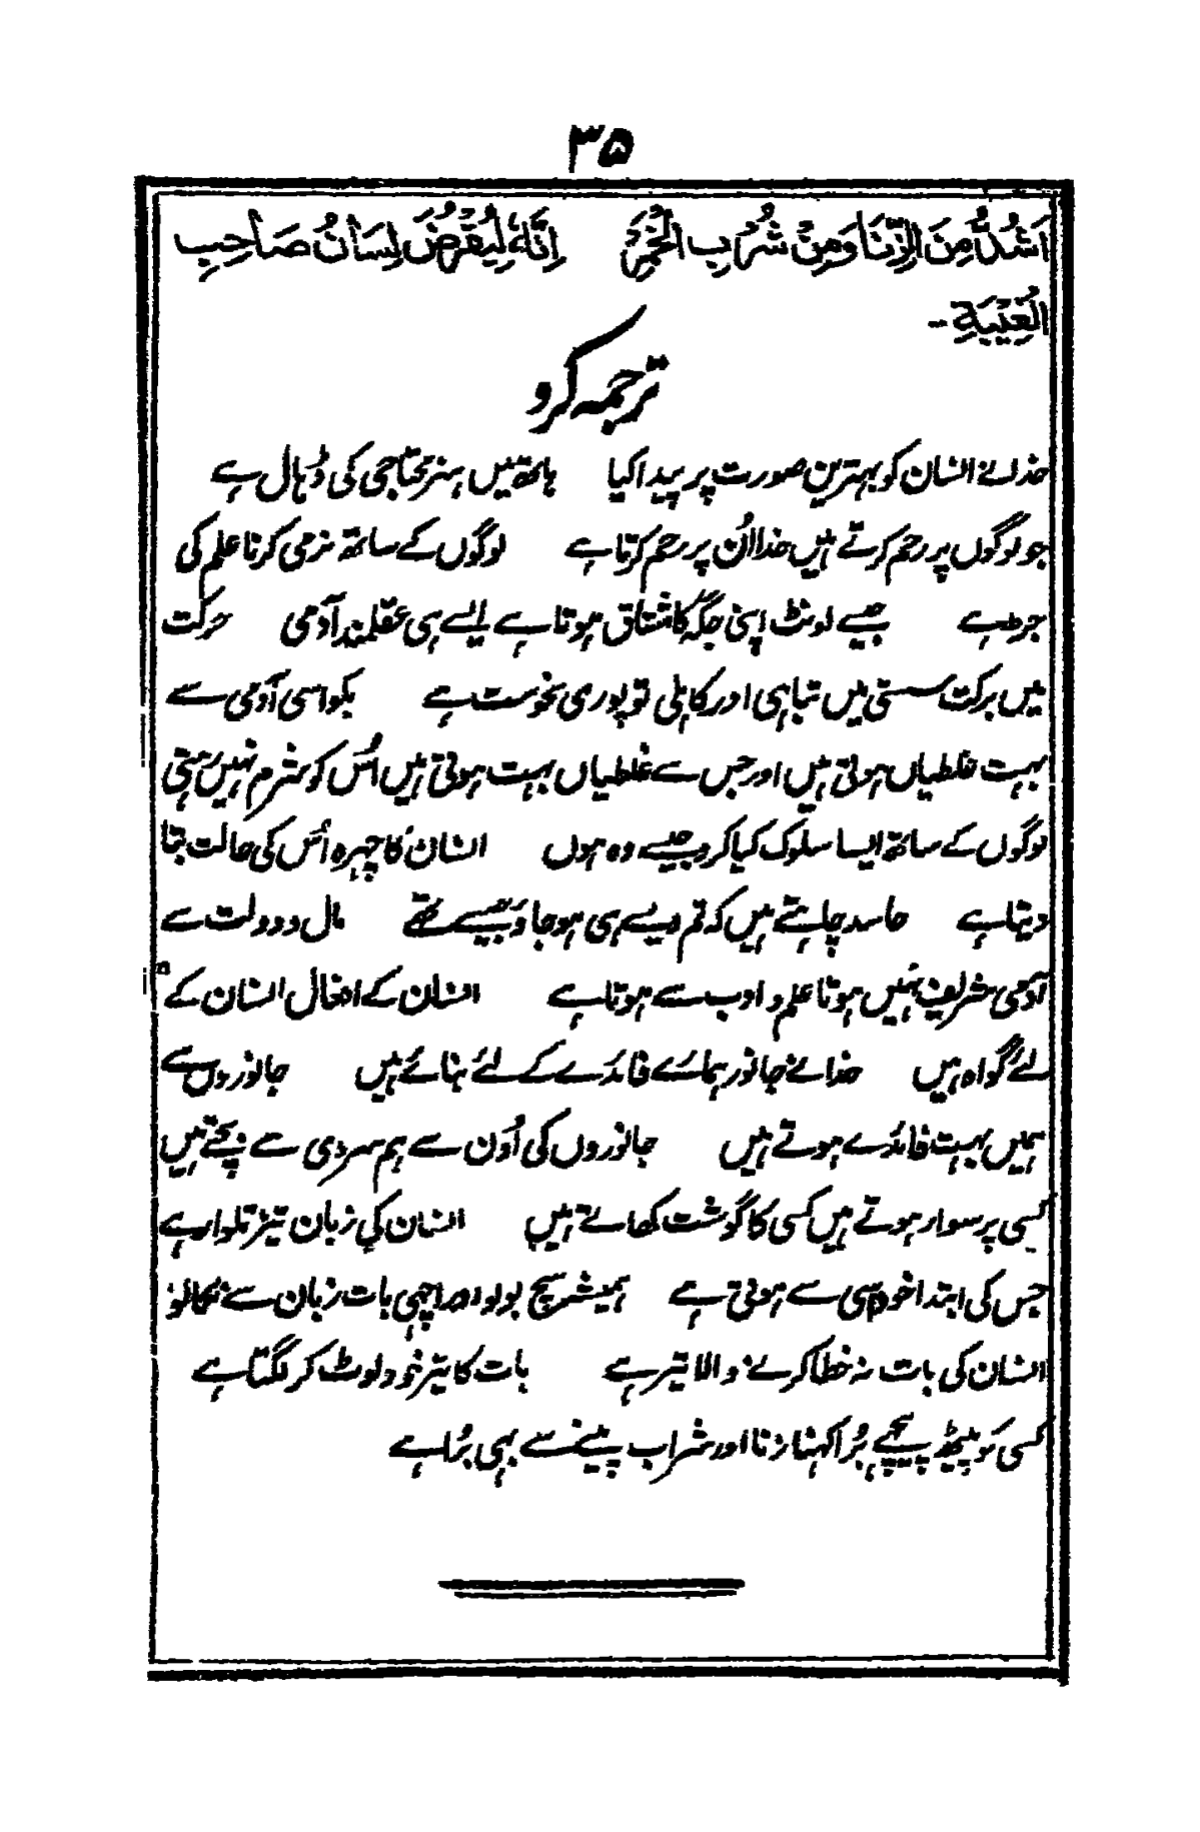 ۳۵
اَشُدُّ مِنَ الزِّنَا وَمِنْ شُرْبِ الْخَمْرِ اِنَّهٗ لَيُقْرَضُ لِسَانُ صَاحِبِ
الْغِيْبَةِ -
ترجمہ کرو
خدانے انسان کو بہترین صورت پر پیدا کیا ہاتھ میں ہنر محتاجی کی ڈہال ہے
جو لوگوں پر رحم کرتے ہیں خدا اُن پر رحم کرتا ہے لوگوں کے ساتھ نرمی کرنا علم کی
جڑ ہے جیسے اونٹ اپنی جگہ کا مشتاق ہوتا ہے ایسے ہی عقلمند آدمی حرکت
میں برکت سستی میں تباہی اور کاہلی تو پوری نحوست ہے بکواسی آدمی سے
بہت غلطیاں ہوتی ہیں اور جس سے غلطیاں بہت ہوتی ہیں اُس کو شرم نہیں رہتی
لوگوں کے ساتھ ایسا سلوک کیا کرو جیسے وہ ہوں انسان کا چہرہ اُس کی حالت بتا
دیتا ہے حاسد چاہتے ہیں کہ تم ویسے ہی ہو جاؤ جیسے تھے مال و دولت سے
آدمی شریف نہیں ہوتا علم و ادب سے ہوتا ہے انسان کے افعال انسان کے
لئے گواہ ہیں خدانے جانور ہمارے فائدے کے لئے بنائے ہیں جانوروں سے
ہمیں بہت فائدے ہوتے ہیں جانوروں کی اُون سے ہم سردی سے بچتے ہیں
کسی پر سوار ہوتے ہیں کسی کا گوشت کھاتے ہیں انسان کی زبان تیز تلوار ہے
جس کی ابتدا خود اسی سے ہوتی ہے ہمیشہ سچ بولو اور اچھی بات زبان سے نکالو
انسان کی بات نہ خطا کرنے والا تیر ہے بات کا تیر خود لوٹ کر لگتا ہے
کسی کو پیٹھ پیچھے بُرا کہنا زنا اور شراب پینے سے بہی بُرا ہے